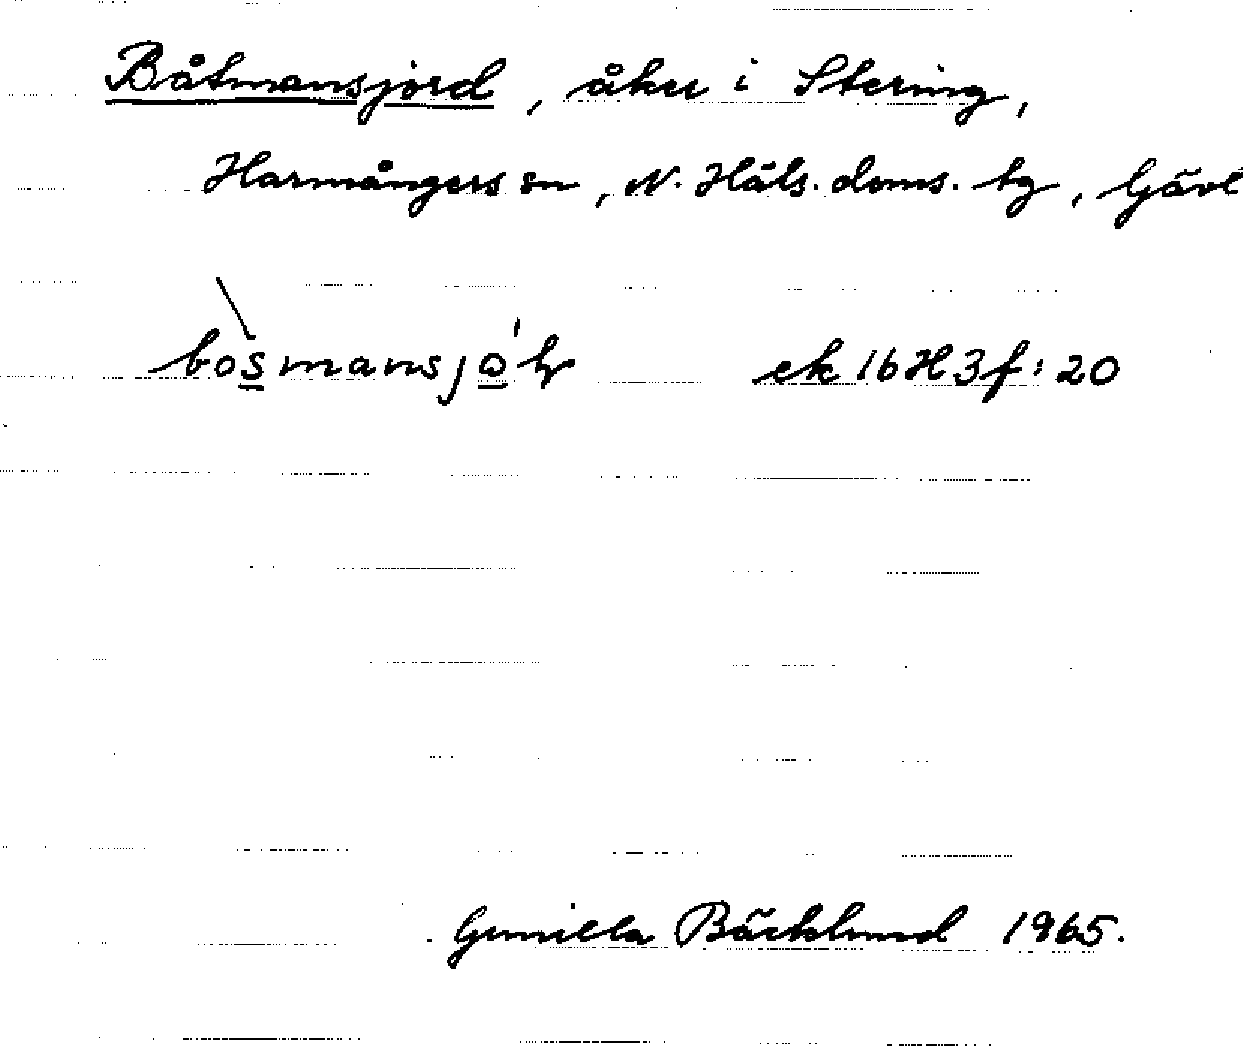 Båtmansjord, åker i Stering,
Harmångers sn, N. Häls. doms. tg, Gävl
ek 16H3f:20
Gunilla Bäcklund 1965.